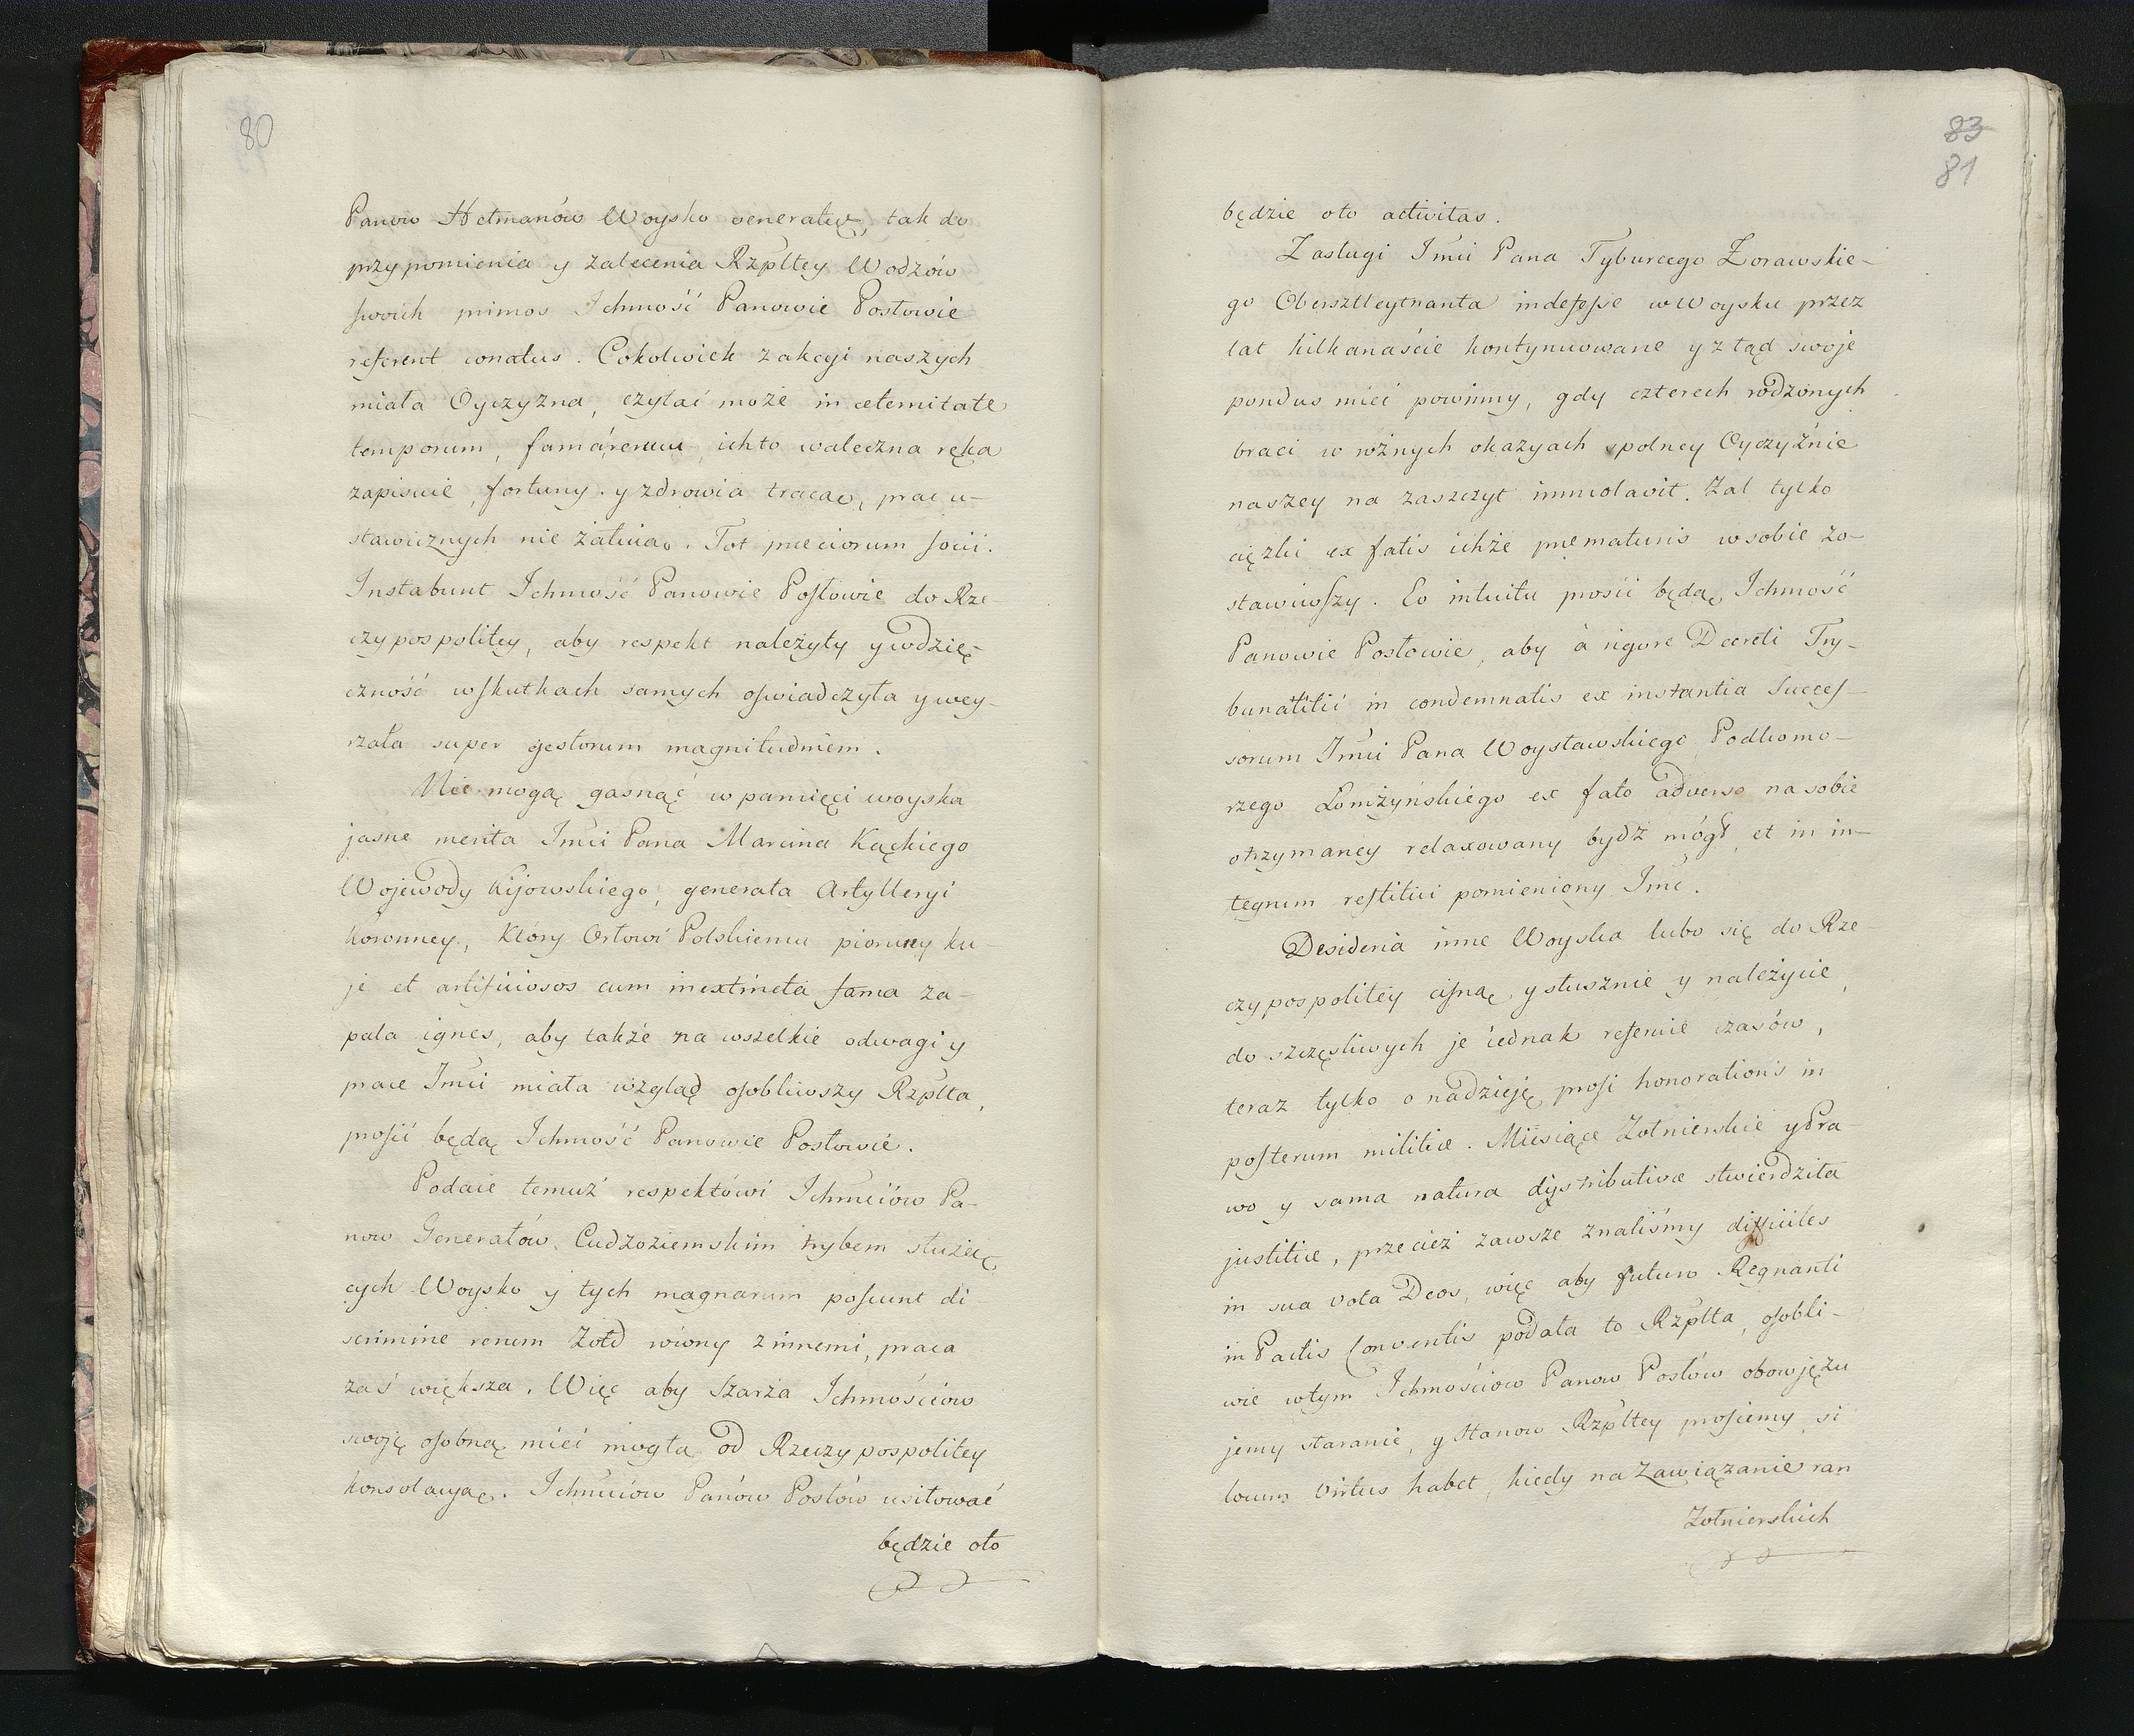 80
Panow Hetmanów Woysko veneratur, tak do
przypomienia y zalecenia Rzpltey Wodzów
swoich primos Ichmość Panowie Posłowie
referent conatus. Cokolwiek z akcyi naszych
miała Oyczyzna, czytać może in æternitate
temporum, famá rerum ich to waleczna ręka
zapisuie, fortuny y zdrowia tracąc, prac u-
stawicznych nie żałuiąc. Tot preciorum socii.
Instabunt Ichmość Panowie Posłowie do Rze-
czypospolitey, aby respekt należyty y wdzię-
czność w skutkach samych oswiadczyła y wey-
rzała super gestorum magnitudniem.
Nie mogą gasnąć w pamięci woyska
jasne merita Jmci Pana Marcina Kąckiego
Wojewody Kijowskiego, generała Artylleryi
Koronney, Który Orłowi Polskiemu pioruny ku-
je et artificiosos cum inextincta fama za-
pala ignes, aby także na wszelkie odwagi y
prace Jmci miała wzgląd osobliwszy Rzplta,
prosić będą Ichmość Panowie Posłowie.
Podaie temuż respektówi Ichmciów Pa-
now Generałów, Cudzoziemskim trybem służą-
cych Woysko y tych magnarum poscunt di-
scrimine rerum Zołd rowny z innemi, praca
zaś większa. Więc aby Szarża Ichmościow
swoję osobną mieć mogła od Rzeczypospolitey
konsolacyą. Ichmciów Panów Posłów usitować
będzie oto
83
81
będzie oto activitas.
Zasługi Jmci Pana Tyburcego Zorawskie-
go Obersztleytnanta indefesse w Woysku przez
lat kilkanaście kontynuowane y ztąd swoje
pondus mieć powinny, gdy czterech rodzonych
braci w rożnych okazyach spolney Oyczyźnie
naszey na zaszczyt immolavit. Zal tylko
ciężki ex fatis ichże prematuris w sobie zo-
stawiwszy. Eo intuitu prosić będą Ichmość
Panowie Posłowie, aby à rigore Decreti Try-
bunatitii in condemnatis ex instantia Succes-
sorum Jmci Pana Woysławskiego Podkomo-
rzego Łomżyńskiego ex fato adverso na sobie
otrzymaney relaxowany bydź mógł, et in in-
tegrum restitui pomieniony Jmć.
Desideria inne Woyska lubo się do Rze-
czypospolitey cisną y słusznie y należycie,
do szczęsliwych je iednak reserwie czasów,
teraz tylko o nadzieję prosi honorationis in
posterum militiæ. Miesiące Zołnierskie y Pra-
wo y sama natura dystributivæ stwierdziła
justitiæ, przecież zawsze znaliśmy difficiles
in sua vota Deos, więc aby futuro Regnanti
in Pactis Conventis podała to Rzplta, osobli-
wie w tym Ichmościow Panow Posłów obowięzu
jemy staranie, y Stanow Rzpltey prosiemy, si
locum virtus habet, kiedy na Zawiązanie ran
Zołnierskich